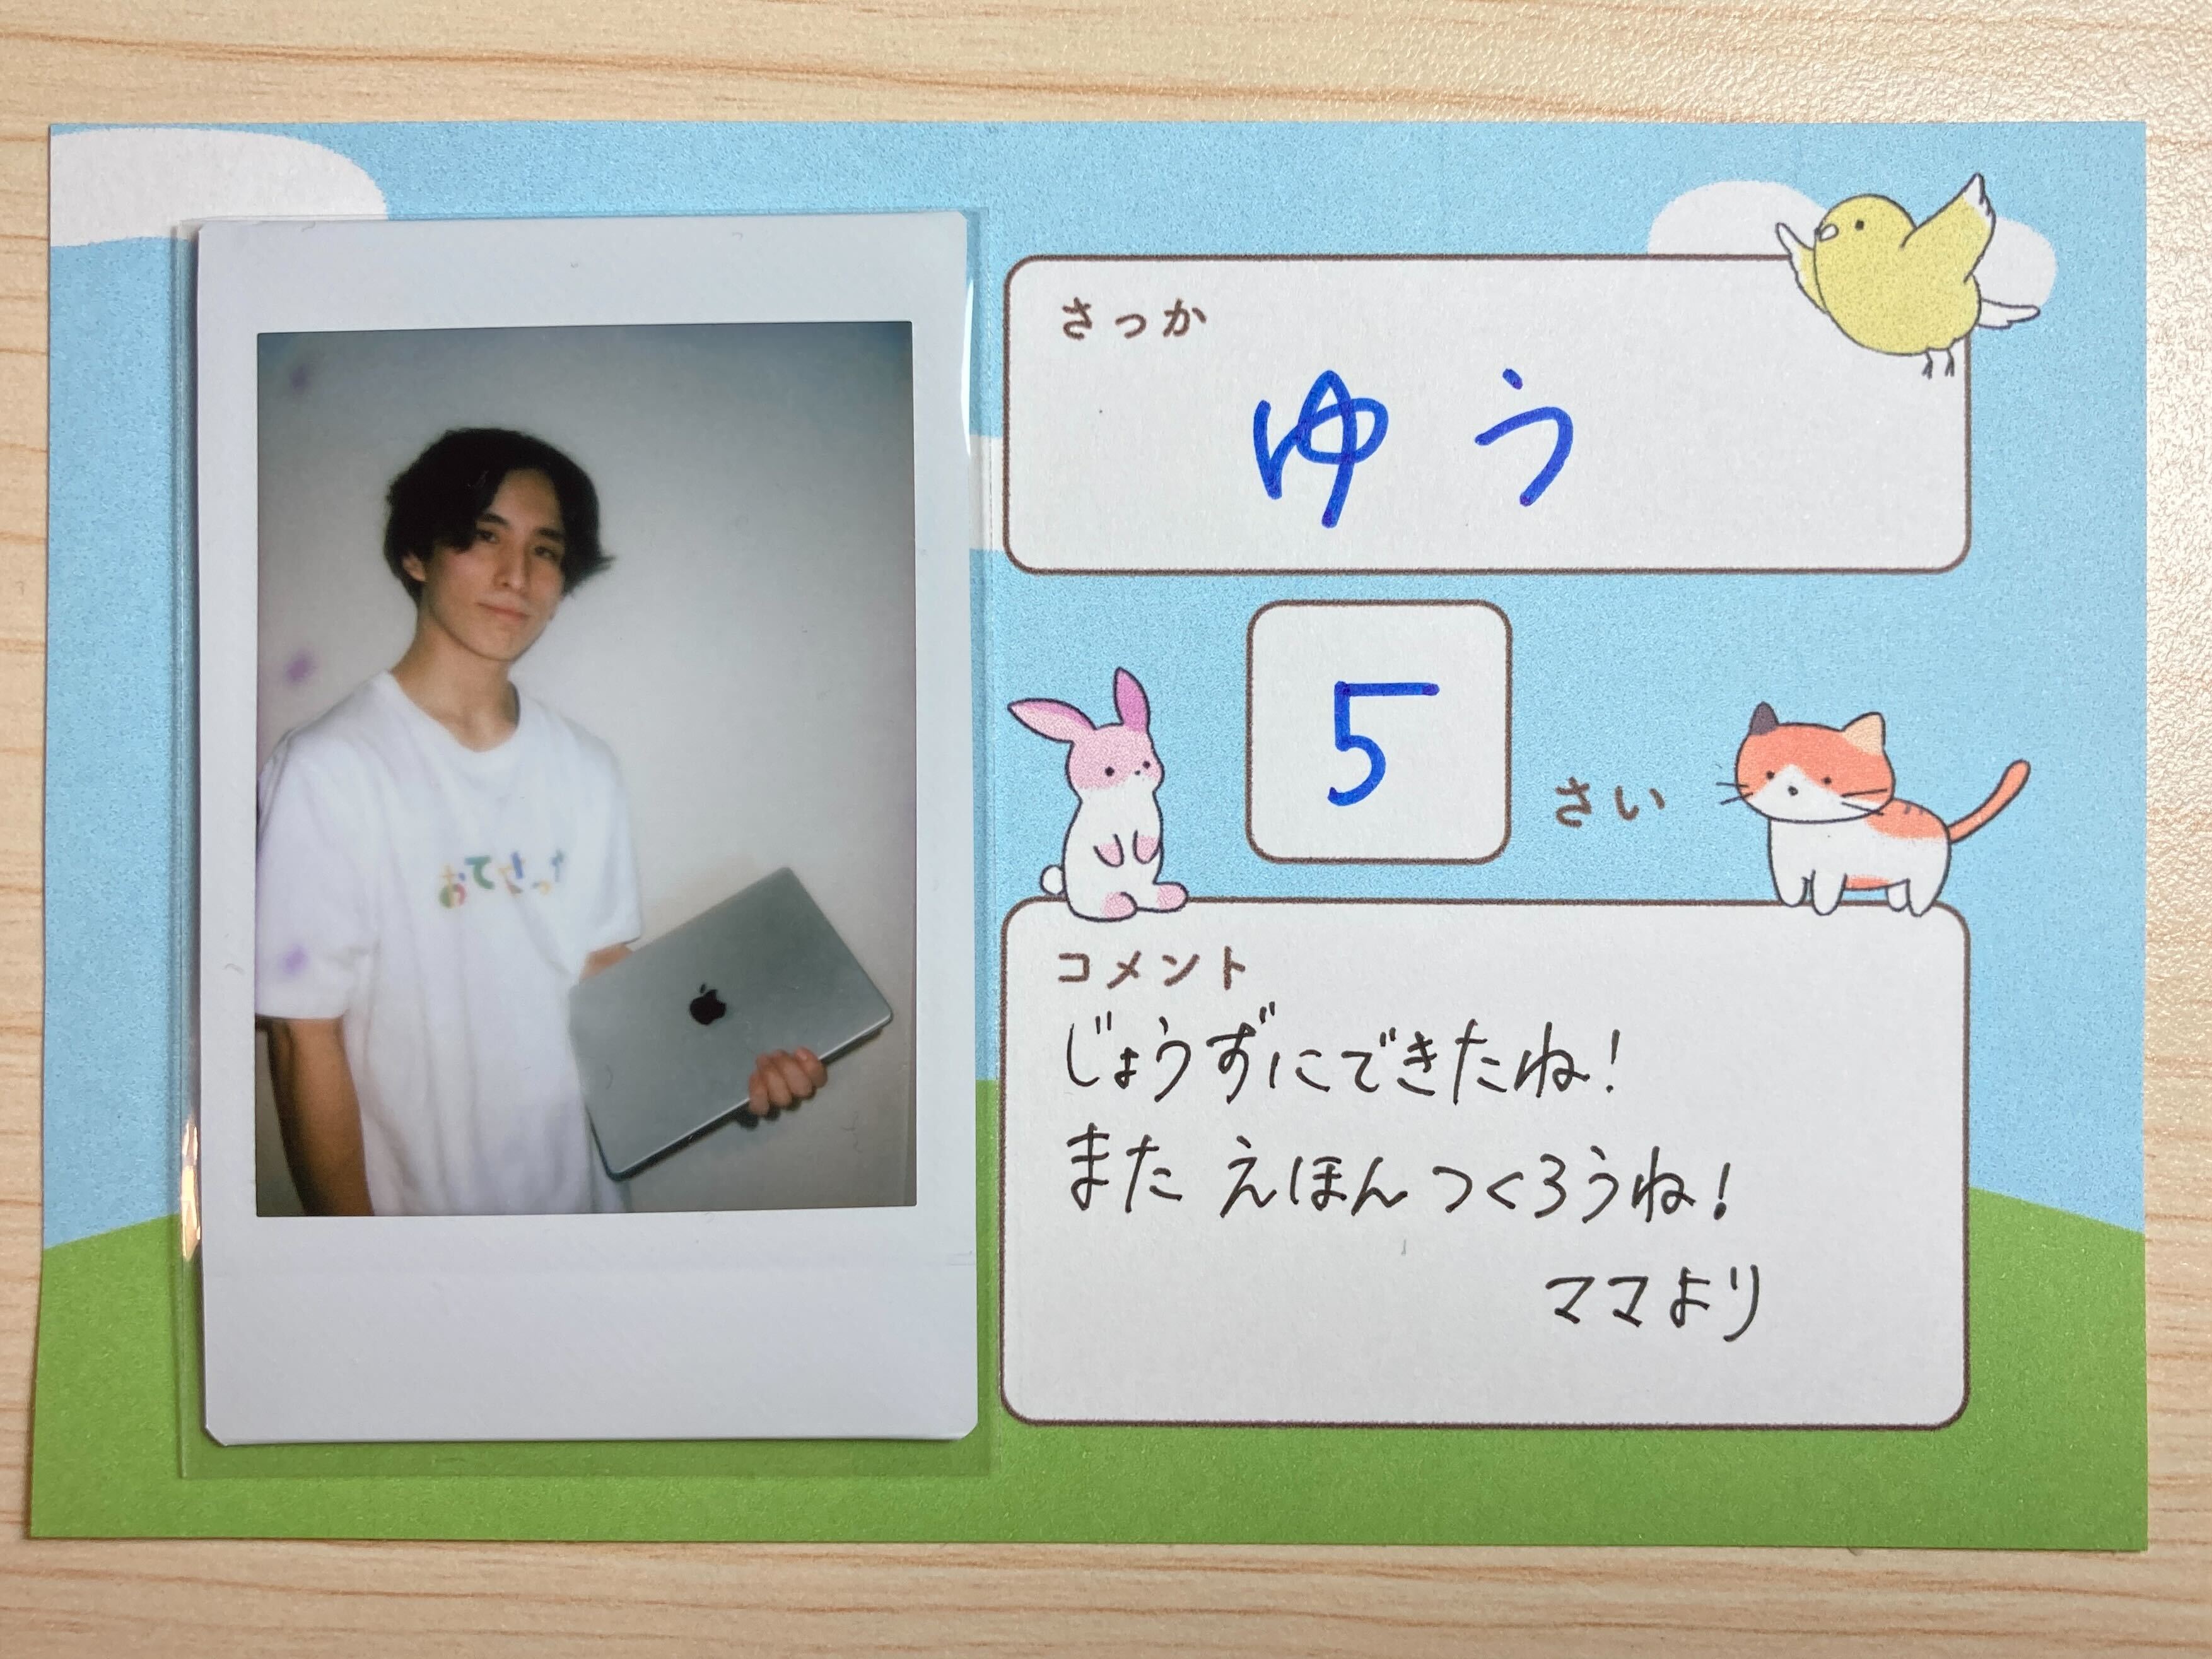 さっか
ゆう
5
さい
コメント
じょうずにできたね!
また えほん つくろうね!
ママより